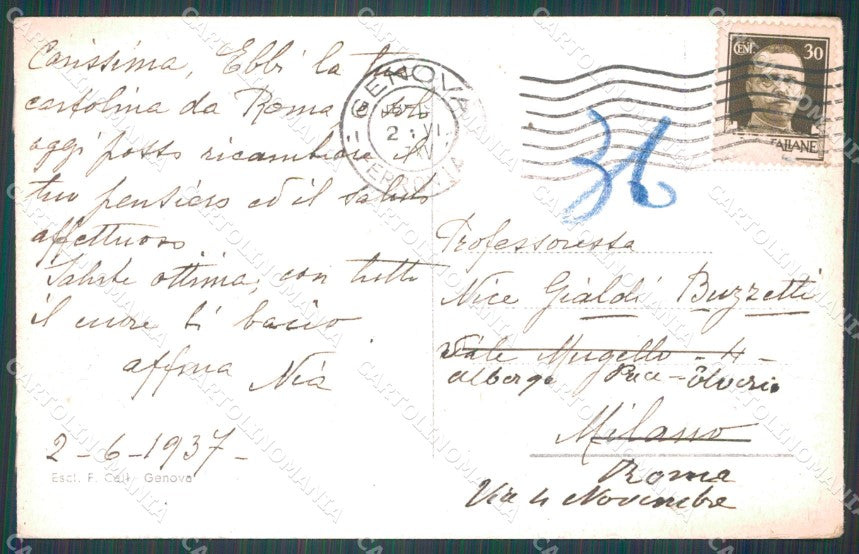 Carissima, Ebbi la tua
cartolina da Roma
oggi posso ricambiare il
tuo pensiero ed il saluto
affettuoso
Salute ottima, con tutto
il cuore ti bacio
affma
2-6-1937-
Escl. F. Genova
GENOVA
FERROVIA
CENT 30
ITALIANE
36
Professoressa
Nice Gialdi Buzzetti
Viale Mugello - 4 -
Albergo Pace-
Milano
Roma
Via 4 Novembre
CARTOLINOMANIA